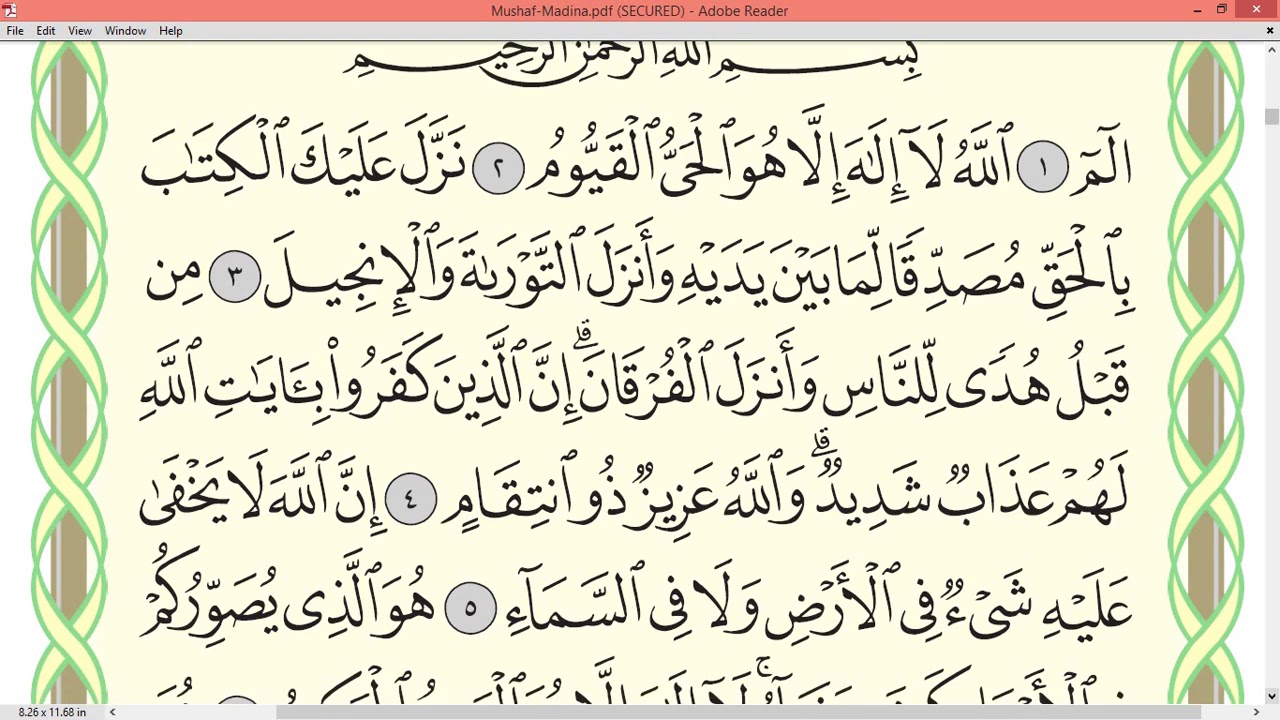 Mushaf-Madina.pdf (SECURED) - Adobe Reader
File Edit View Window Help
بِسْمِ ٱللَّهِ ٱلرَّحْمَٰنِ ٱلرَّحِيمِ
الٓمٓ ١ ٱللَّهُ لَآ إِلَٰهَ إِلَّا هُوَ ٱلْحَىُّ ٱلْقَيُّومُ ٢ نَزَّلَ عَلَيْكَ ٱلْكِتَٰبَ
بِٱلْحَقِّ مُصَدِّقًا لِّمَا بَيْنَ يَدَيْهِ وَأَنزَلَ ٱلتَّوْرَىٰةَ وَٱلْإِنجِيلَ ٣ مِن
قَبْلُ هُدًى لِّلنَّاسِ وَأَنزَلَ ٱلْفُرْقَانَ ۗ إِنَّ ٱلَّذِينَ كَفَرُوا۟ بِـَٔايَٰتِ ٱللَّهِ
لَهُمْ عَذَابٌ شَدِيدٌ ۗ وَٱللَّهُ عَزِيزٌ ذُو ٱنتِقَامٍ ٤ إِنَّ ٱللَّهَ لَا يَخْفَىٰ
عَلَيْهِ شَىْءٌ فِى ٱلْأَرْضِ وَلَا فِى ٱلسَّمَآءِ ٥ هُوَ ٱلَّذِى يُصَوِّرُكُمْ
8.26 x 11.68 in